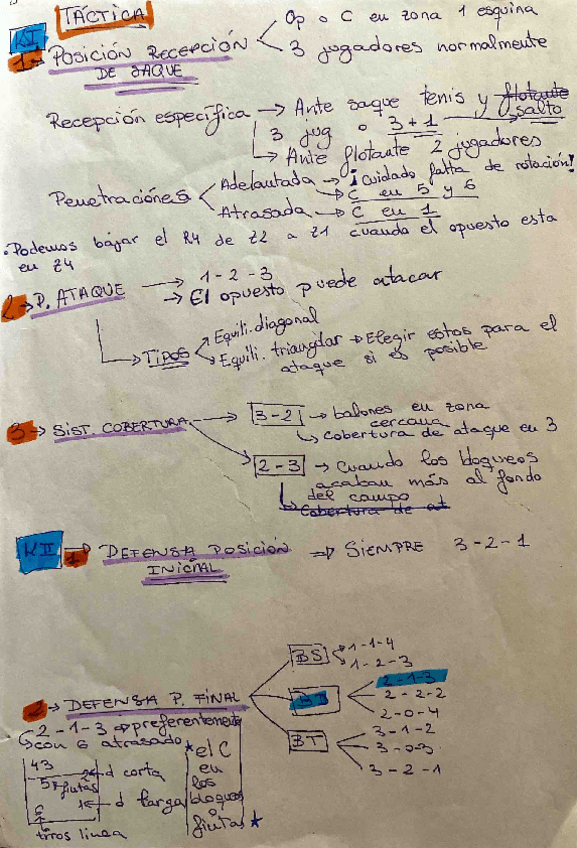 TÁCTICA
KI
1→ POSICIÓN RECEPCIÓN DE SAQUE
Op o C en zona 1 esquina
3 jugadores normalmente
Recepción específica → Ante saque tenis y flotante salto
3 jug o 3+1
→ Ante flotante 2 jugadores
Penetraciones
Adelantada → ¡Cuidado falta de rotación!
C en 5 y 6
Atrasada → C en 1
• Podemos bajar el R4 de Z2 a Z1 cuando el opuesto esta
en Z4
2→ P. ATAQUE → 1-2-3
→ El opuesto puede atacar
→ TIPOS
Equili. diagonal
Equili. triangular → Elegir estos para el
ataque si es posible
3→ SIST. COBERTURA → 3-2 → balones en zona
cercana
↳ Cobertura de ataque en 3
2-3 → Cuando los bloqueos
acaban más al fondo
del campo
↳ Cobertura de at
KII 1→ DEFENSA POSICIÓN INICIAL ⇒ SIEMPRE 3-2-1
2→ DEFENSA P. FINAL
BS
1-1-4
1-2-3
BD
2-1-3
2-2-2
2-0-4
BT
3-1-2
3-0-3
3-2-1
↳ 2-1-3 → preferentemente
con 6 atrasado
43
5 fintas
2← d corta
1← d larga
6
tiros linea
★ el C
en
los
bloqueos
o
fintas ★